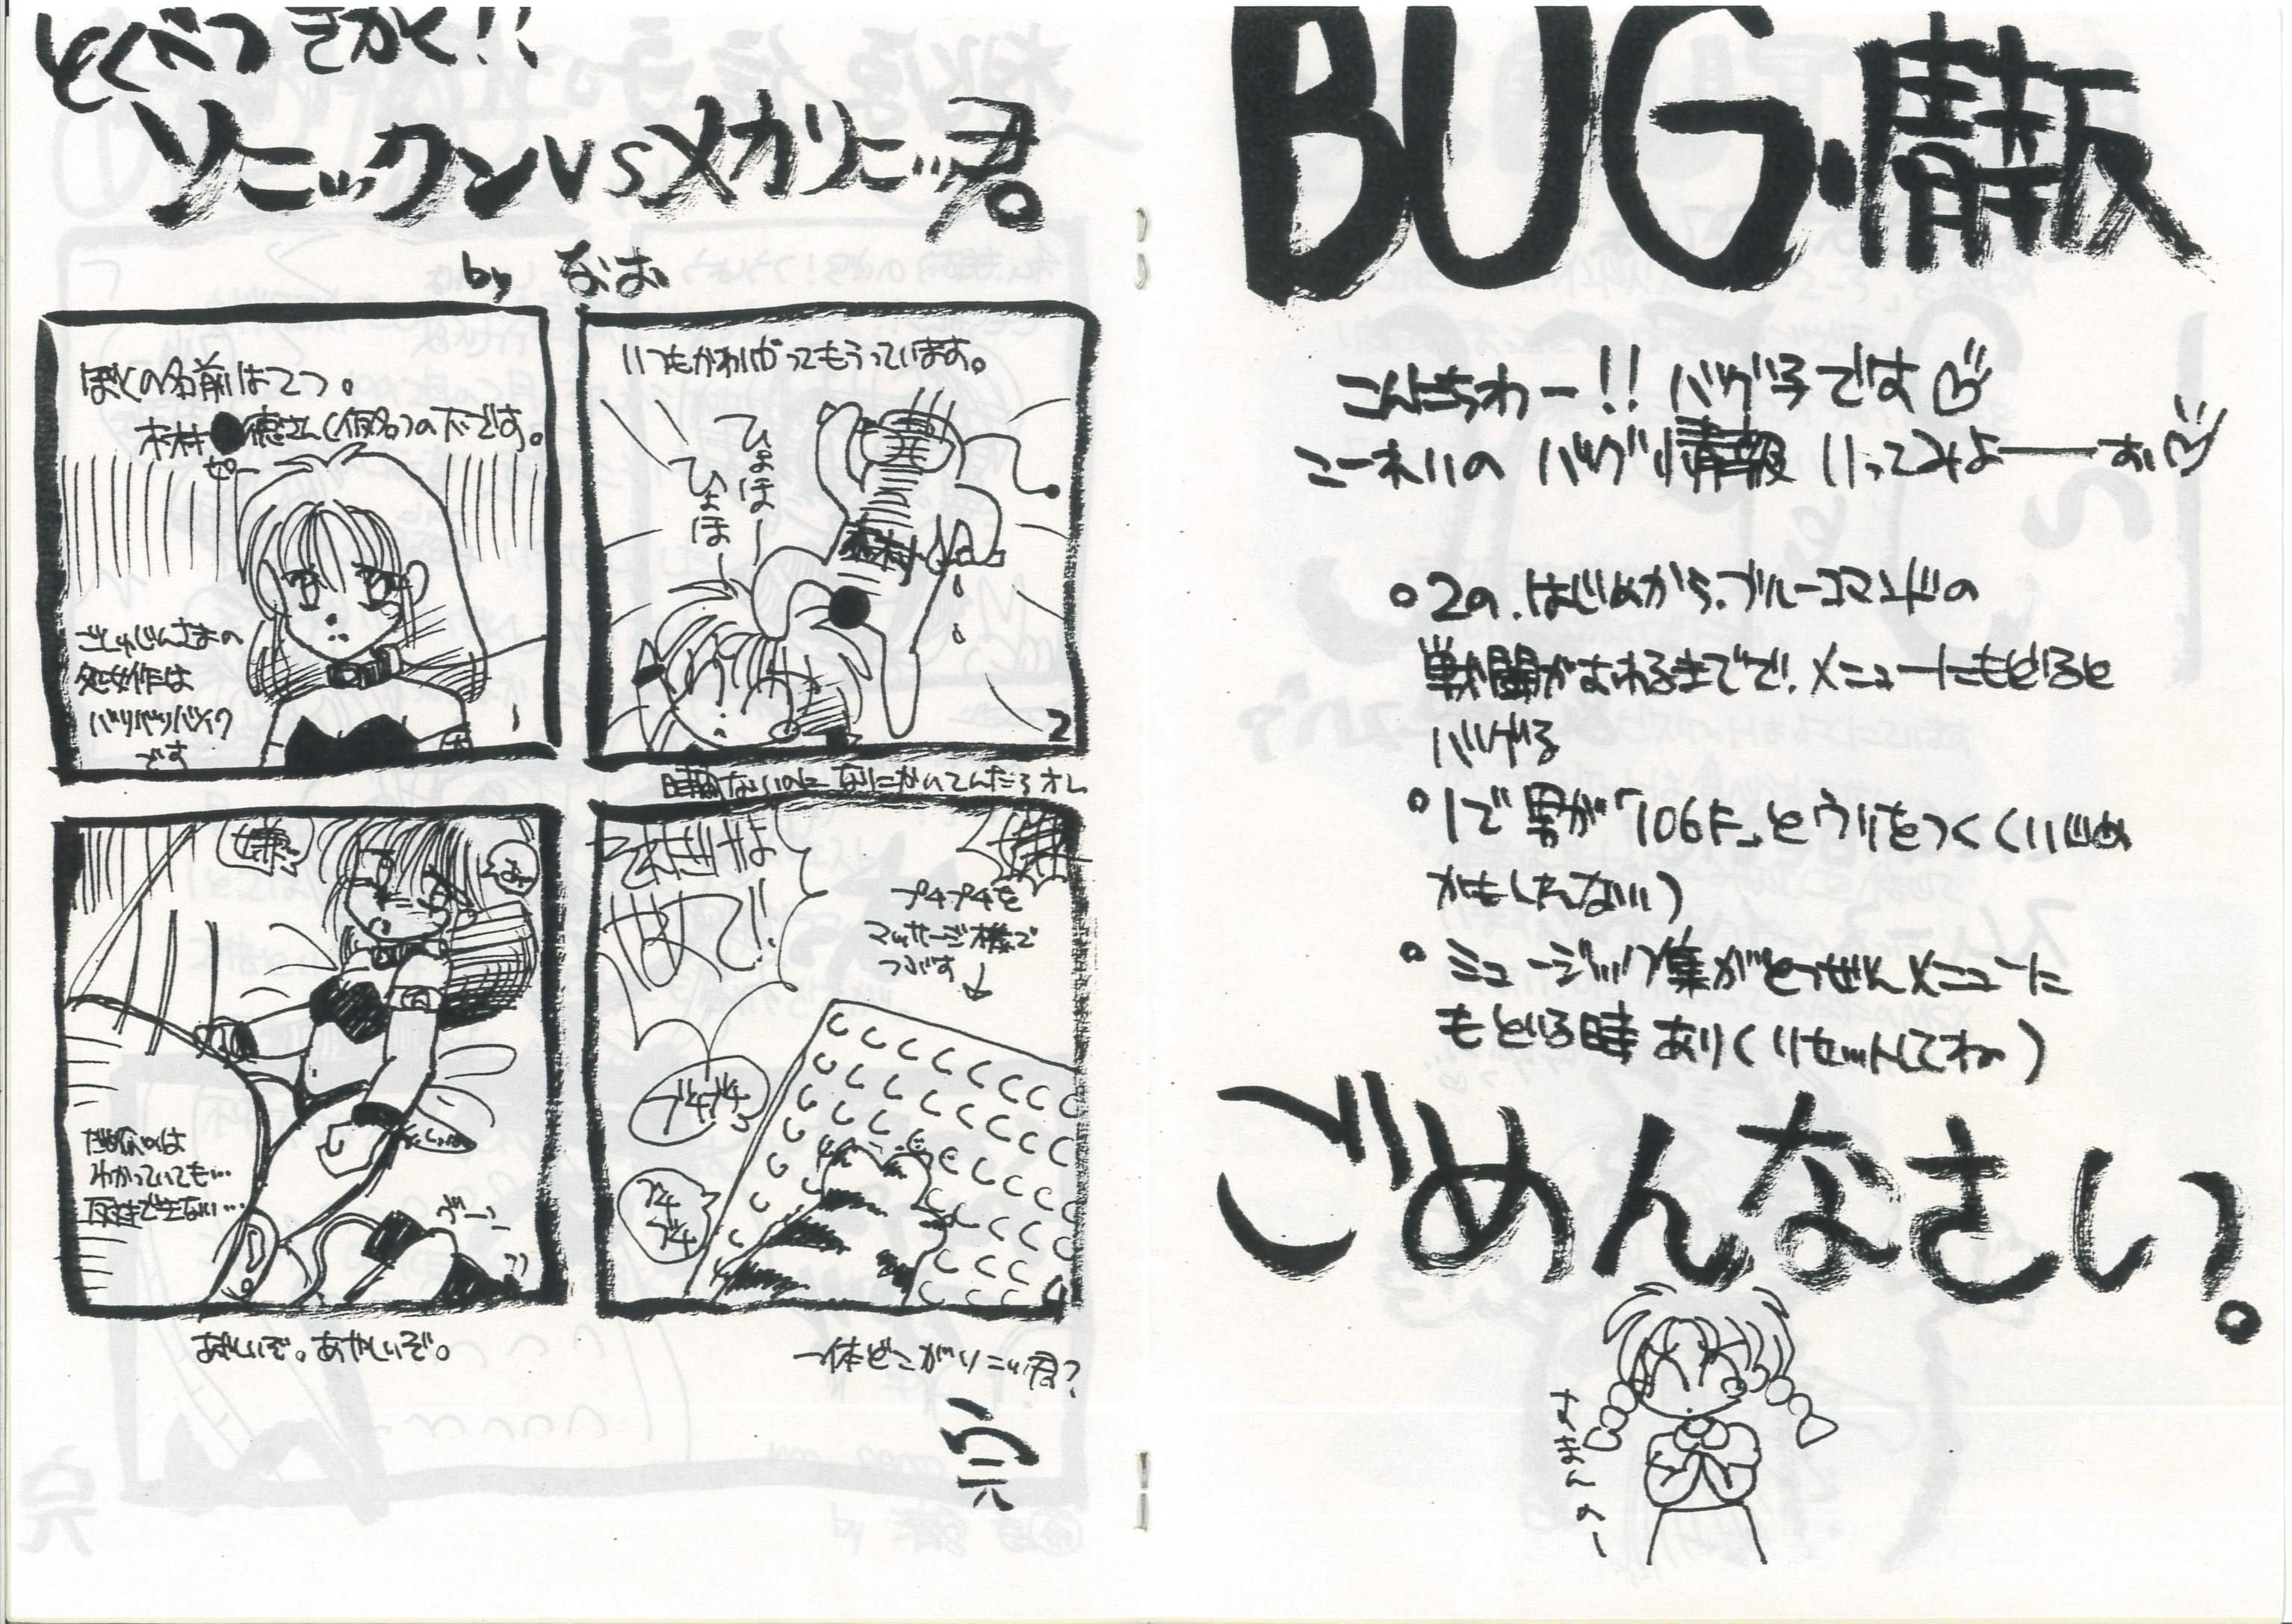 とくべつ きかく!!
ソニックンVSメガリニッ君。
by なお
ぼくの名前はてつ。
木村●徳さん(仮名)の下です。
ピー
ごしゅじんさまの
処女作は
バリバリバイク
です
1
いつもかわいがってもらっています。
ひょほー
ひょほー
木村
2
時間ないのに なにかいてんだろオレ
嫌〜
だめなのは
わかっていても…
反応できない…
ブーン
あやしいぞ。あやしいぞ。
それだけは
やめて!!
プチプチを
マッサージ機で
つぶす
プチプチ
プチ
プチ
一体どこがリニッ君?
完
BUG・情報
こんにちわー!! バグ子です♡
こーれいの バグ情報 いってみよ――お♡
○2の.はじめから.ブルーコマンドの
戦闘がおわるまでで!.メニューにもどると
バグる
○1で男が「106F」とウソをつく(いじめ
かもしれない)
○ミュージック集がとつぜんメニューに
もどる時あり(リセットしてねー)
ごめんなさい。
すまんのー